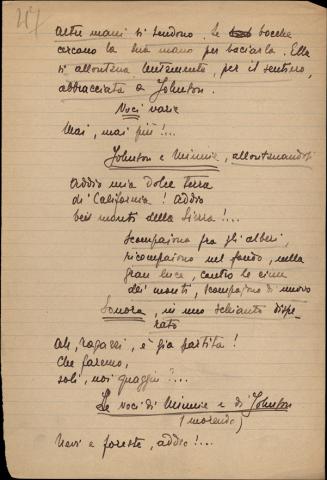 altre mani si tendono. Le bocche
cercano la sua mano per baciarla. Ella
si allontana lentamente, per il sentiero,
abbracciata a Johnson.
Voci varie
Mai, mai più!...
Johnson e Minnie, allontanandosi
Addio mia dolce terra
di California! Addio
bei monti della Sierra!...
Scompaiono fra gli alberi,
ricompaiono nel fondo, nella
gran luce, contro le cime
dei monti, scompaiono di nuovo
Sonora, in uno schianto dispe-
rato
Ah, ragazzi, è già partita!
Che faremo,
soli, noi quaggiù?...
Le voci di Minnie e di Johnson
(morendo)
Nevi e foreste, addio!...